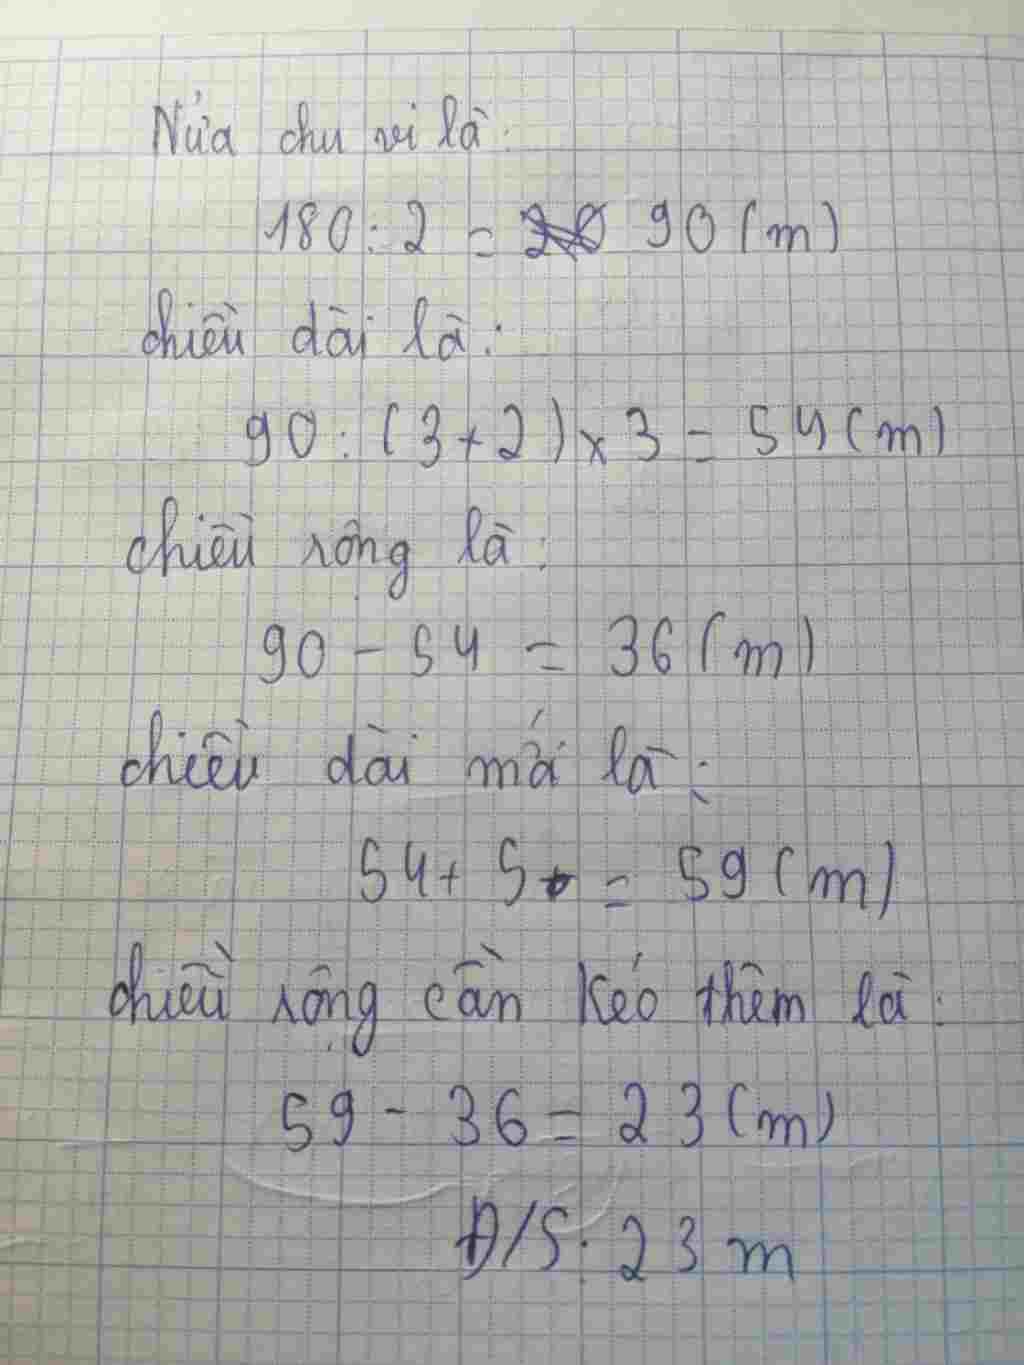 Nửa chu vi là:
180 : 2 = 90 (m)
chiều dài là:
90 : (3 + 2) x 3 = 54 (m)
chiều rộng là:
90 - 54 = 36 (m)
chiều dài mới là:
54 + 5 = 59 (m)
chiều rộng cần kéo thêm là:
59 - 36 = 23 (m)
Đ/S: 23 m